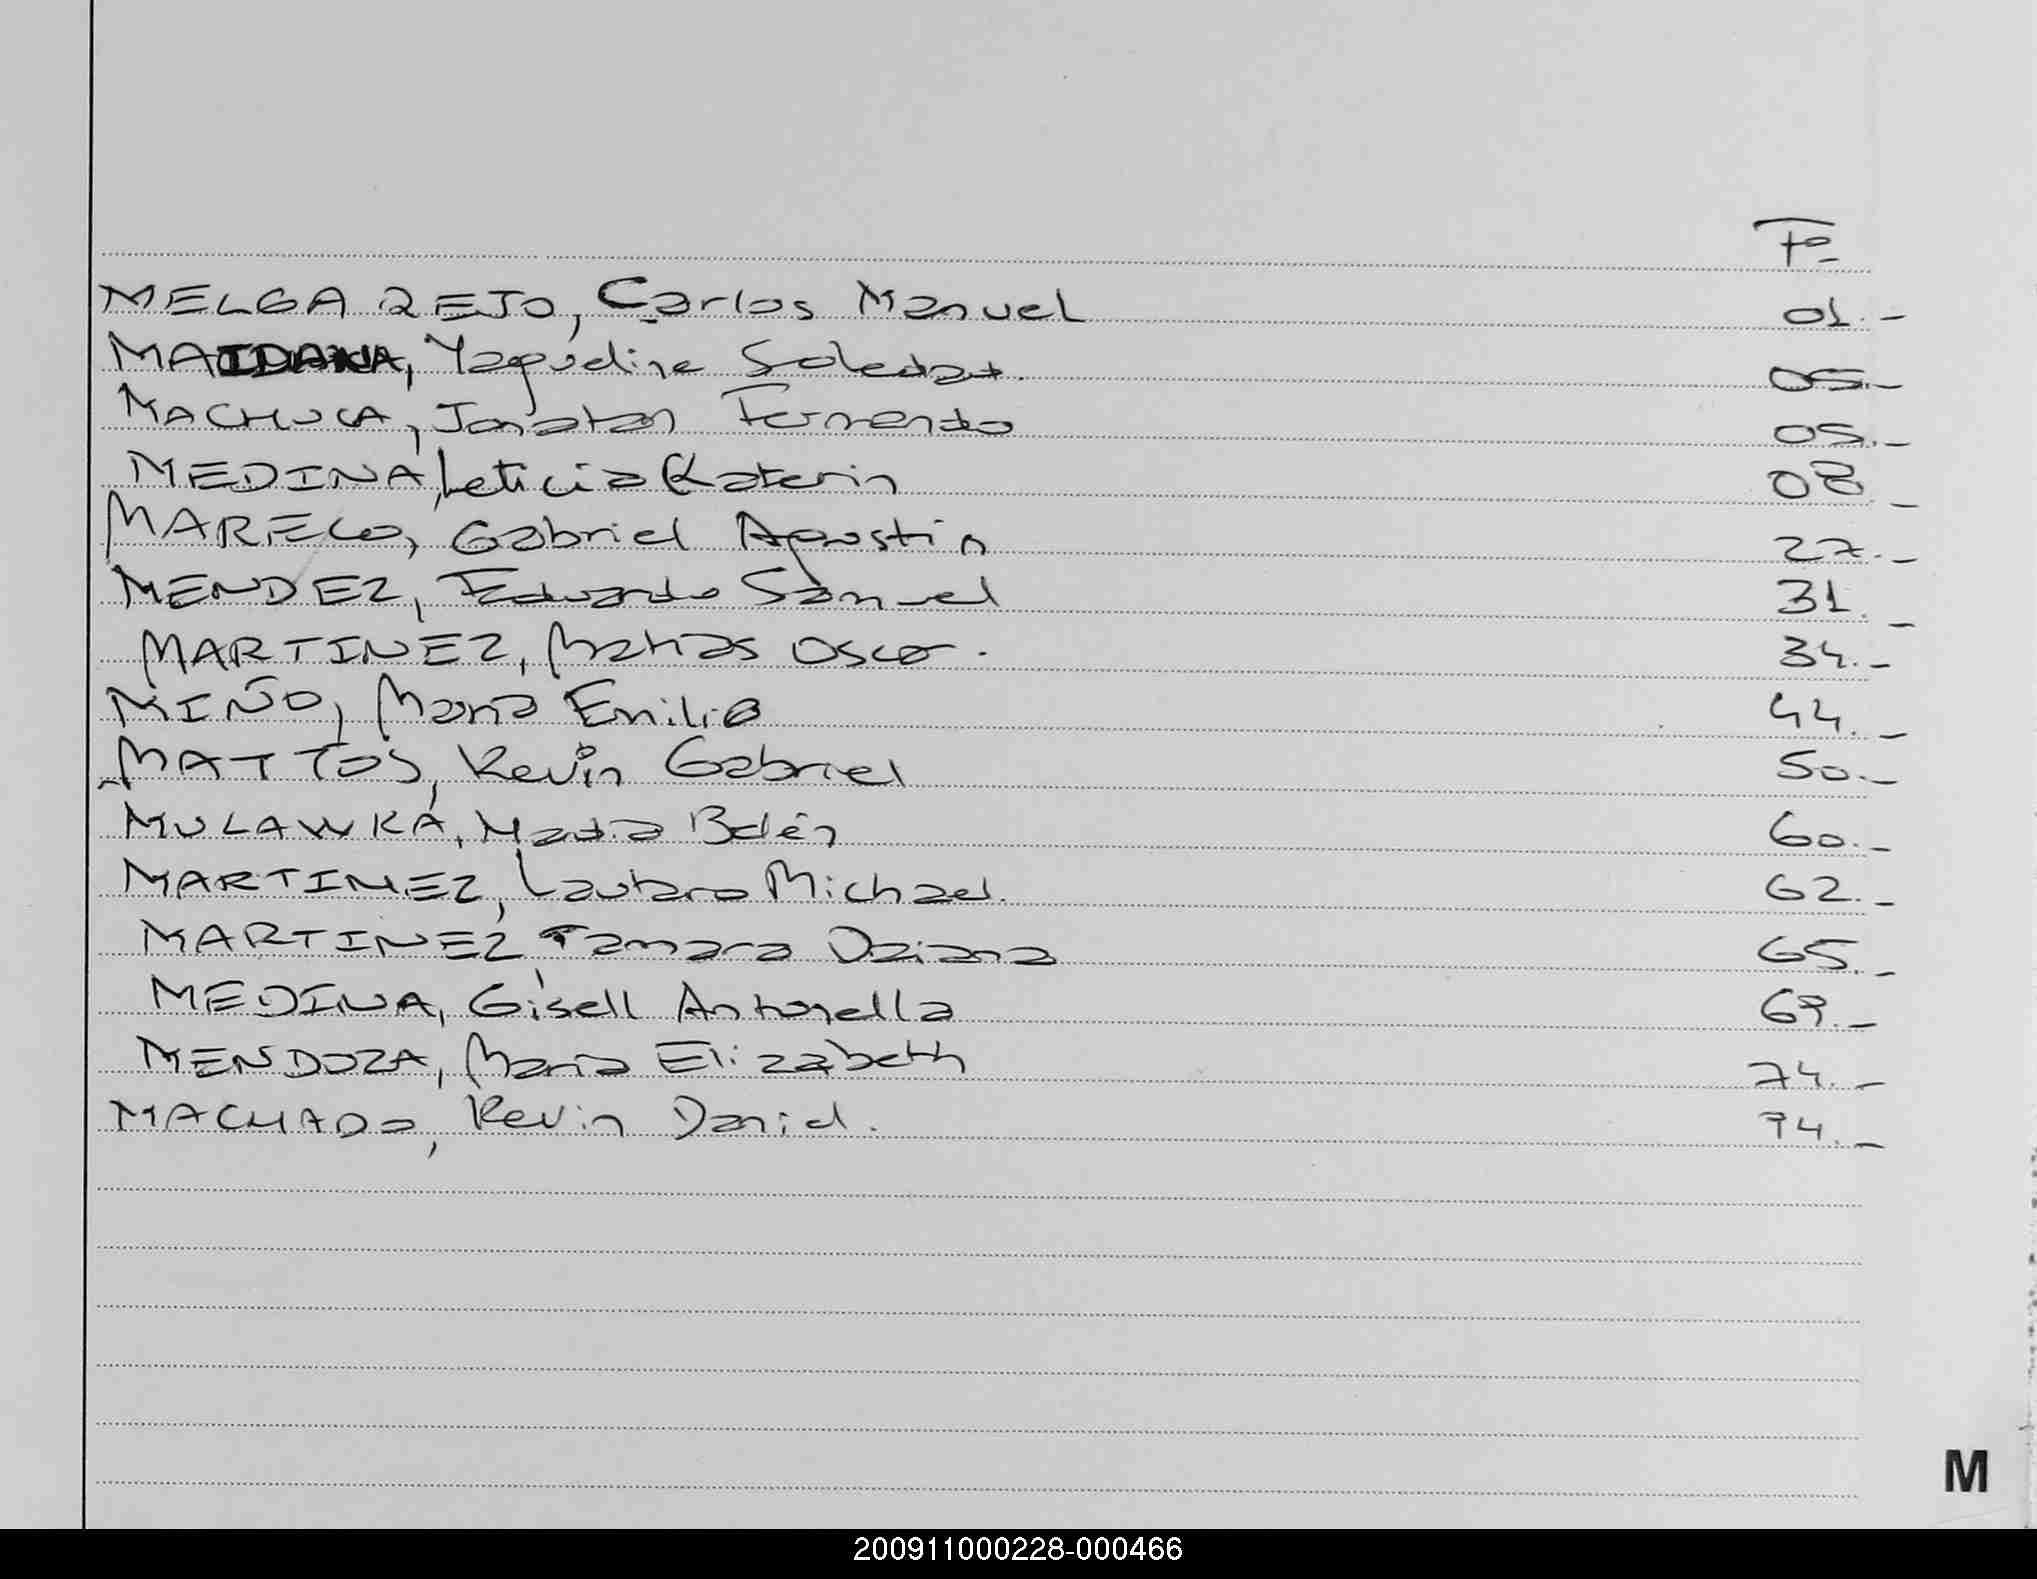 Fº
MELGAREJO, Carlos Manuel 01.-
MAIDANA, Yaqueline Soledad. 05.-
MACHUCA, Jonatan Fernando 05.-
MEDINA, Leticia Katerin 08.-
MARECO, Gabriel Agustin 27.-
MENDEZ, Eduardo Samuel 31.-
MARTINEZ, Matias Oscar. 34.-
MIÑO, Maria Emilia 44.-
MATTOS, Kevin Gabriel 50.-
MULAWKA, Nadia Belén 60.-
MARTINEZ, Lautaro Michael. 62.-
MARTINEZ, Tamara Daiana 65.-
MEDINA, Gisell Antonella 69.-
MENDOZA, Maria Elizabeth 74.-
MACHADO, Kevin Daniel. 94.-
M
200911000228-000466